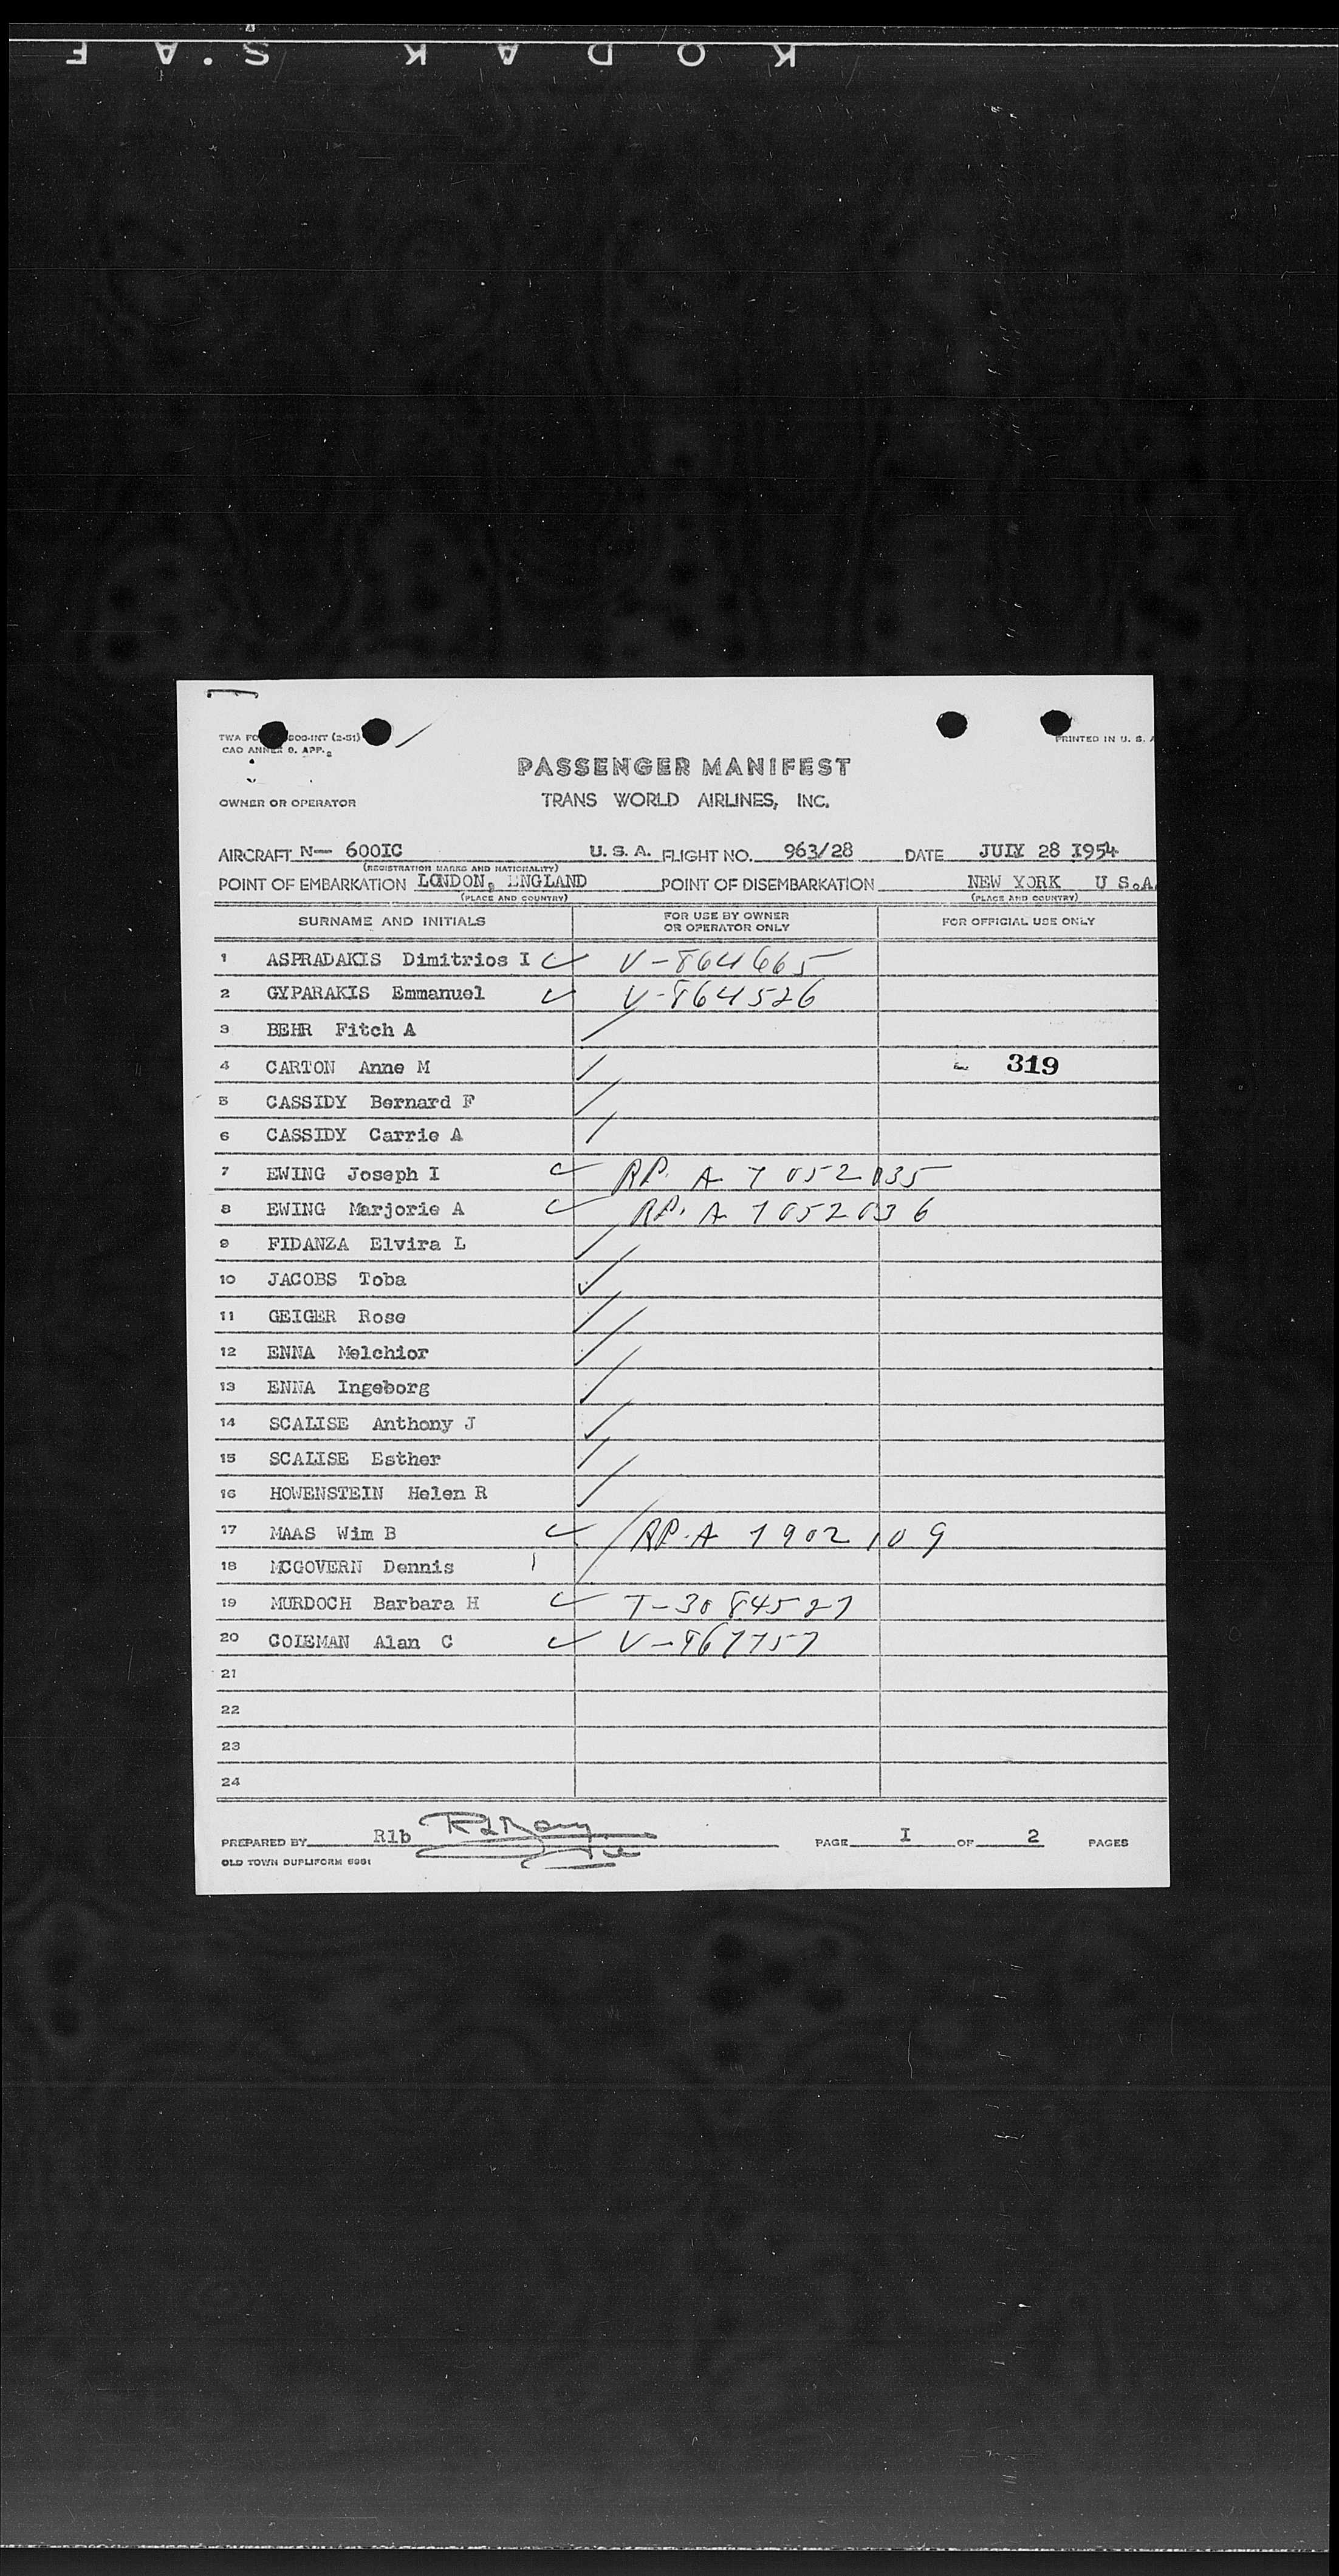 KODAK S.A F
TWA FO 500-INT (2-51)
PRINTED IN U. S. A
CAO ANNEX 9. APP. 2
PASSENGER MANIFEST
OWNER OR OPERATOR TRANS WORLD AIRLINES, INC.
AIRCRAFT N— 600IC U. S. A. FLIGHT NO. 963/28 DATE JULY 28 I954
(REGISTRATION MARKS AND NATIONALITY)
POINT OF EMBARKATION LONDON, ENGLAND POINT OF DISEMBARKATION NEW YORK U S.A.
(PLACE AND COUNTRY) (PLACE AND COUNTRY)
SURNAME AND INITIALS FOR USE BY OWNER OR OPERATOR ONLY FOR OFFICIAL USE ONLY
1 ASPRADAKIS Dimitrios I V-864665
2 GYPARAKIS Emmanuel V-864526
3 BEHR Fitch A
4 CARTON Anne M 319
5 CASSIDY Bernard F
6 CASSIDY Carrie A
7 EWING Joseph I RP. A 7052035
8 EWING Marjorie A RP. A 7052036
9 FIDANZA Elvira L
10 JACOBS Toba
11 GEIGER Rose
12 ENNA Melchior
13 ENNA Ingeborg
14 SCALISE Anthony J
15 SCALISE Esther
16 HOWENSTEIN Helen R
17 MAAS Wim B RP.A 7902109
18 MCGOVERN Dennis
19 MURDOCH Barbara H T-3084527
20 COLEMAN Alan C V-867757
21
22
23
24
PREPARED BY Rlb PAGE I OF 2 PAGES
OLD TOWN DUPLIFORM